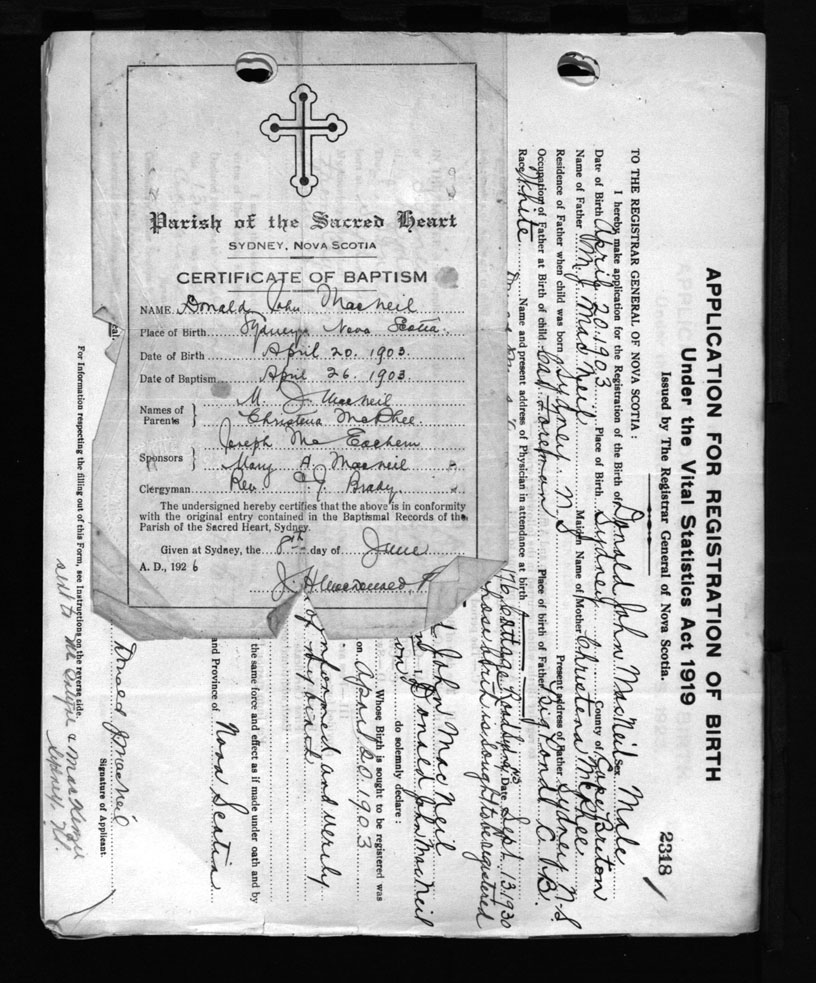 Parish of the Sacred Heart
SYDNEY, NOVA SCOTIA
CERTIFICATE OF BAPTISM
NAME. Donald John MacNeil
Place of Birth Sydney, Nova Scotia.
Date of Birth April 20. 1903.
Date of Baptism April 26. 1903.
Names of Parents } M. J. MacNeil
Christena McPhee.
Sponsors } Joseph McEachern
Mary A. MacNeil
Clergyman Rev. C. J. Brady
The undersigned hereby certifies that the above is in conformity
with the original entry contained in the Baptismal Records of the
Parish of the Sacred Heart, Sydney.
Given at Sydney, the 8th day of June
A. D., 1926
J. H. MacDonald P.
APPLICATION FOR REGISTRATION OF BIRTH
Under the Vital Statistics Act 1919
Issued by The Registrar General of Nova Scotia.
2318
TO THE REGISTRAR GENERAL OF NOVA SCOTIA:
I hereby make application for the Registration of the Birth of Donald John MacNeil Sex Male
Date of Birth April 20. 1903 Place of Birth Sydney County of Cape Breton
Name of Father M. J. MacNeil Maiden Name of Mother Christena McPhee
Residence of Father when child was born Sydney. N.S Present address of Father Sydney N.S.
Occupation of Father at Birth of child Car Foreman Place of birth of Father Big Pond C. B.
Race White Name and present address of Physician in attendance at birth
176 Cottage Road Syd. N.S Date Sept. 13, 1930
whose birth is sought to be registered
John MacNeil
Donald John MacNeil
son do solemnly declare:
Whose Birth is sought to be registered was
on April 20. 1903
informed and verily
of my kind
the same force and effect as if made under oath and by
and Province of Nova Scotia
Donald J MacNeil
Signature of Applicant.
For Information respecting the filling out of this Form, see Instructions on the reverse side.
sent to
Sydney. N.S.